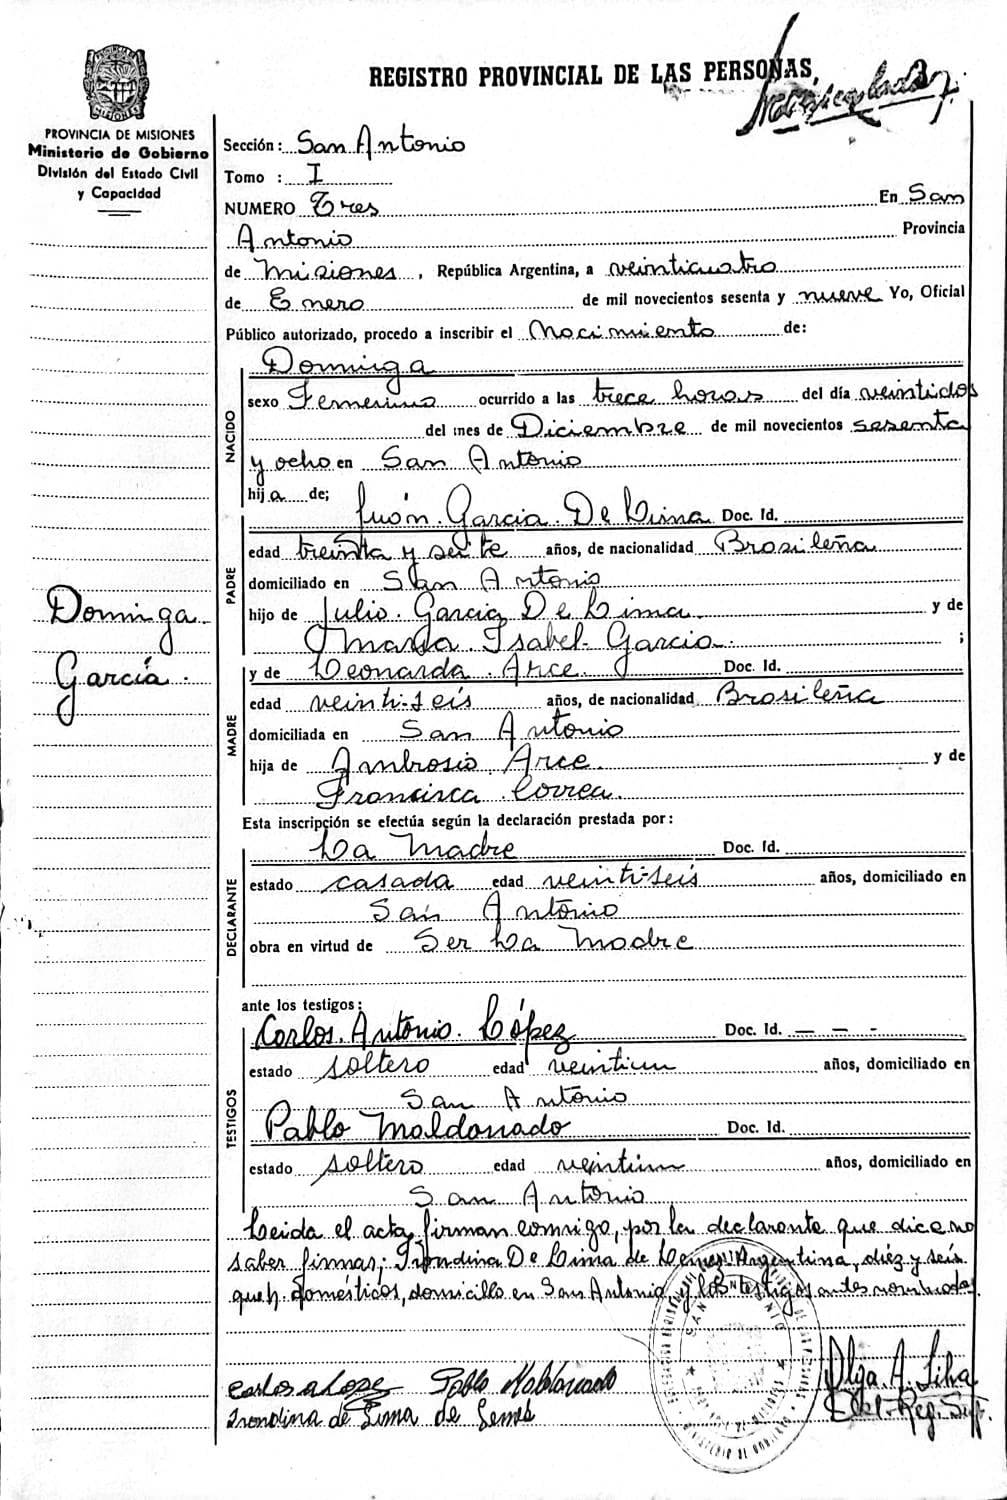 REGISTRO PROVINCIAL DE LAS PERSONAS,
PROVINCIA DE MISIONES
Ministerio de Gobierno
División del Estado Civil
y Capacidad
Sección: San Antonio
Tomo : I
NUMERO Tres En San
Antonio Provincia
de Misiones, República Argentina, a veinticuatro
de Enero de mil novecientos sesenta y nueve Yo, Oficial
Público autorizado, procedo a inscribir el Nacimiento de:
NACIDO
Dominga
sexo Femenino ocurrido a las trece horas del día veintidos
del mes de Diciembre de mil novecientos sesenta
y ocho en San Antonio
hija de;
PADRE
Juán. Garcia De Lima Doc. Id.
edad treinta y siete años, de nacionalidad Brasileña
domiciliado en San Antonio
hijo de Julio. Garcia De Lima. y de
Maria Isabel. Garcia. ;
Dominga
García.
MADRE
y de Leonarda. Arce. Doc. Id.
edad veinti-seis años, de nacionalidad Brasileña
domiciliada en San Antonio
hija de Ambrosio Arce. y de
Francisca Correa.
Esta inscripción se efectúa según la declaración prestada por:
DECLARANTE
La Madre Doc. Id.
estado casada edad veinti-seis años, domiciliado en
San Antonio
obra en virtud de Ser La Madre
ante los testigos:
TESTIGOS
Carlos. Antonio. López Doc. Id. — — -
estado soltero edad veintiun años, domiciliado en
San Antonio
Pablo Maldonado Doc. Id.
estado soltero edad veintiun años, domiciliado en
San Antonio
Leida el acta, firman conmigo, por la declarante que dice no
saber firmar; De Lima de Argentina, diéz y seis
domésticos, domicilio en San Antonio, y los testigos antes nombrados.
Carlos A Lopez Pablo Maldonado Olga A. Silva
de Lima de Del. Reg. Sup.